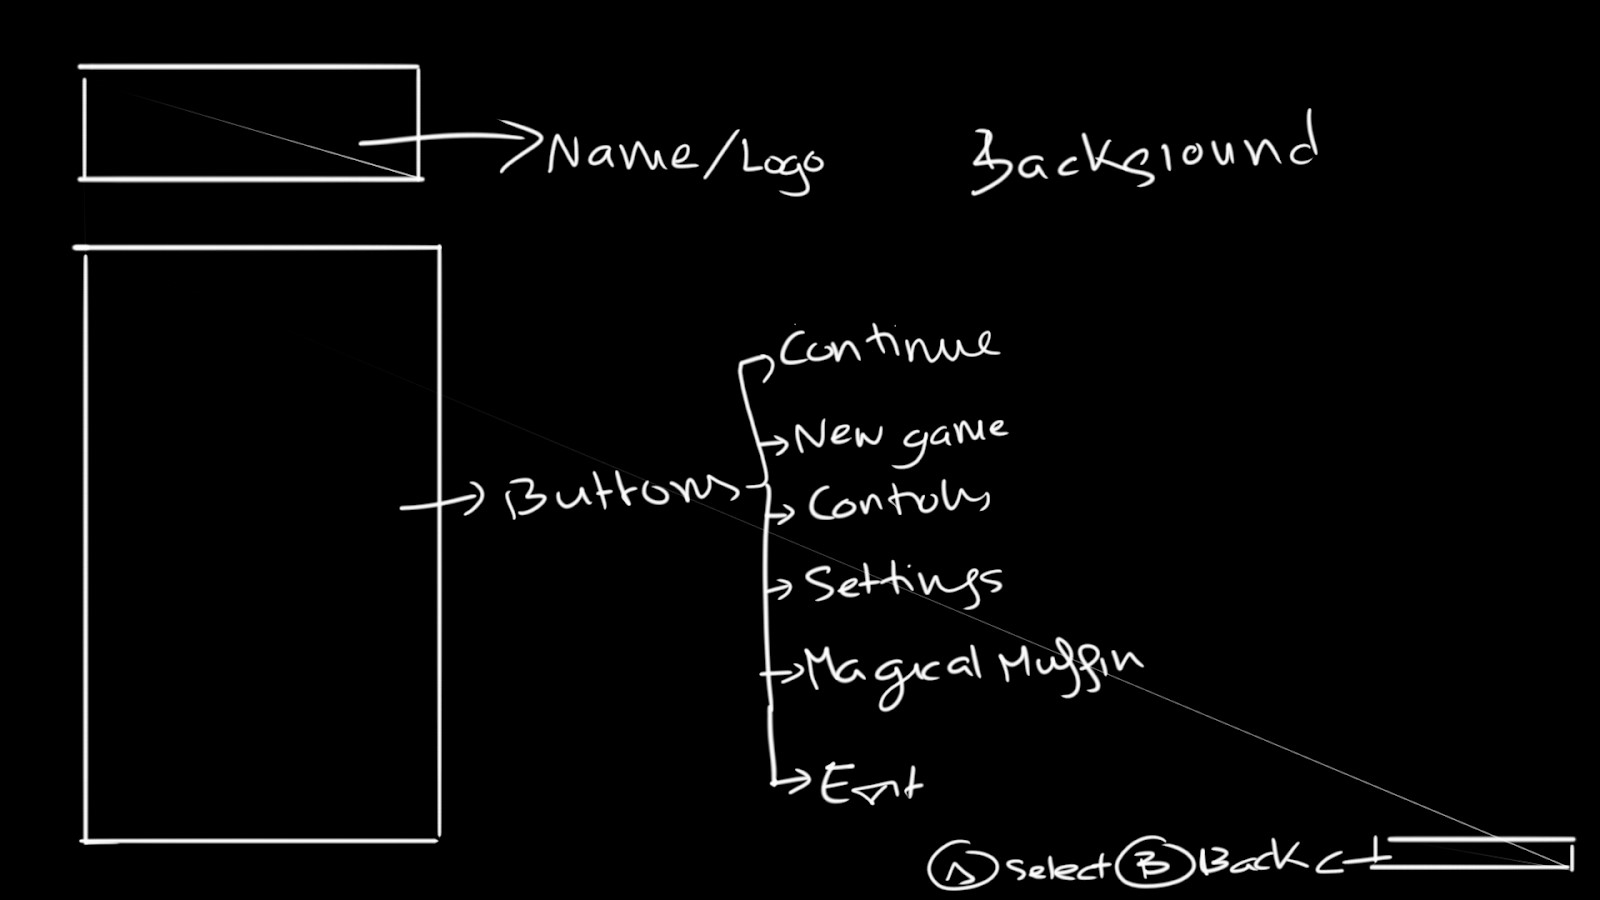 Name/Logo
Background
Continue
New game
Buttons
Controls
Settings
Magical Muffin
Exit
A Select B Back